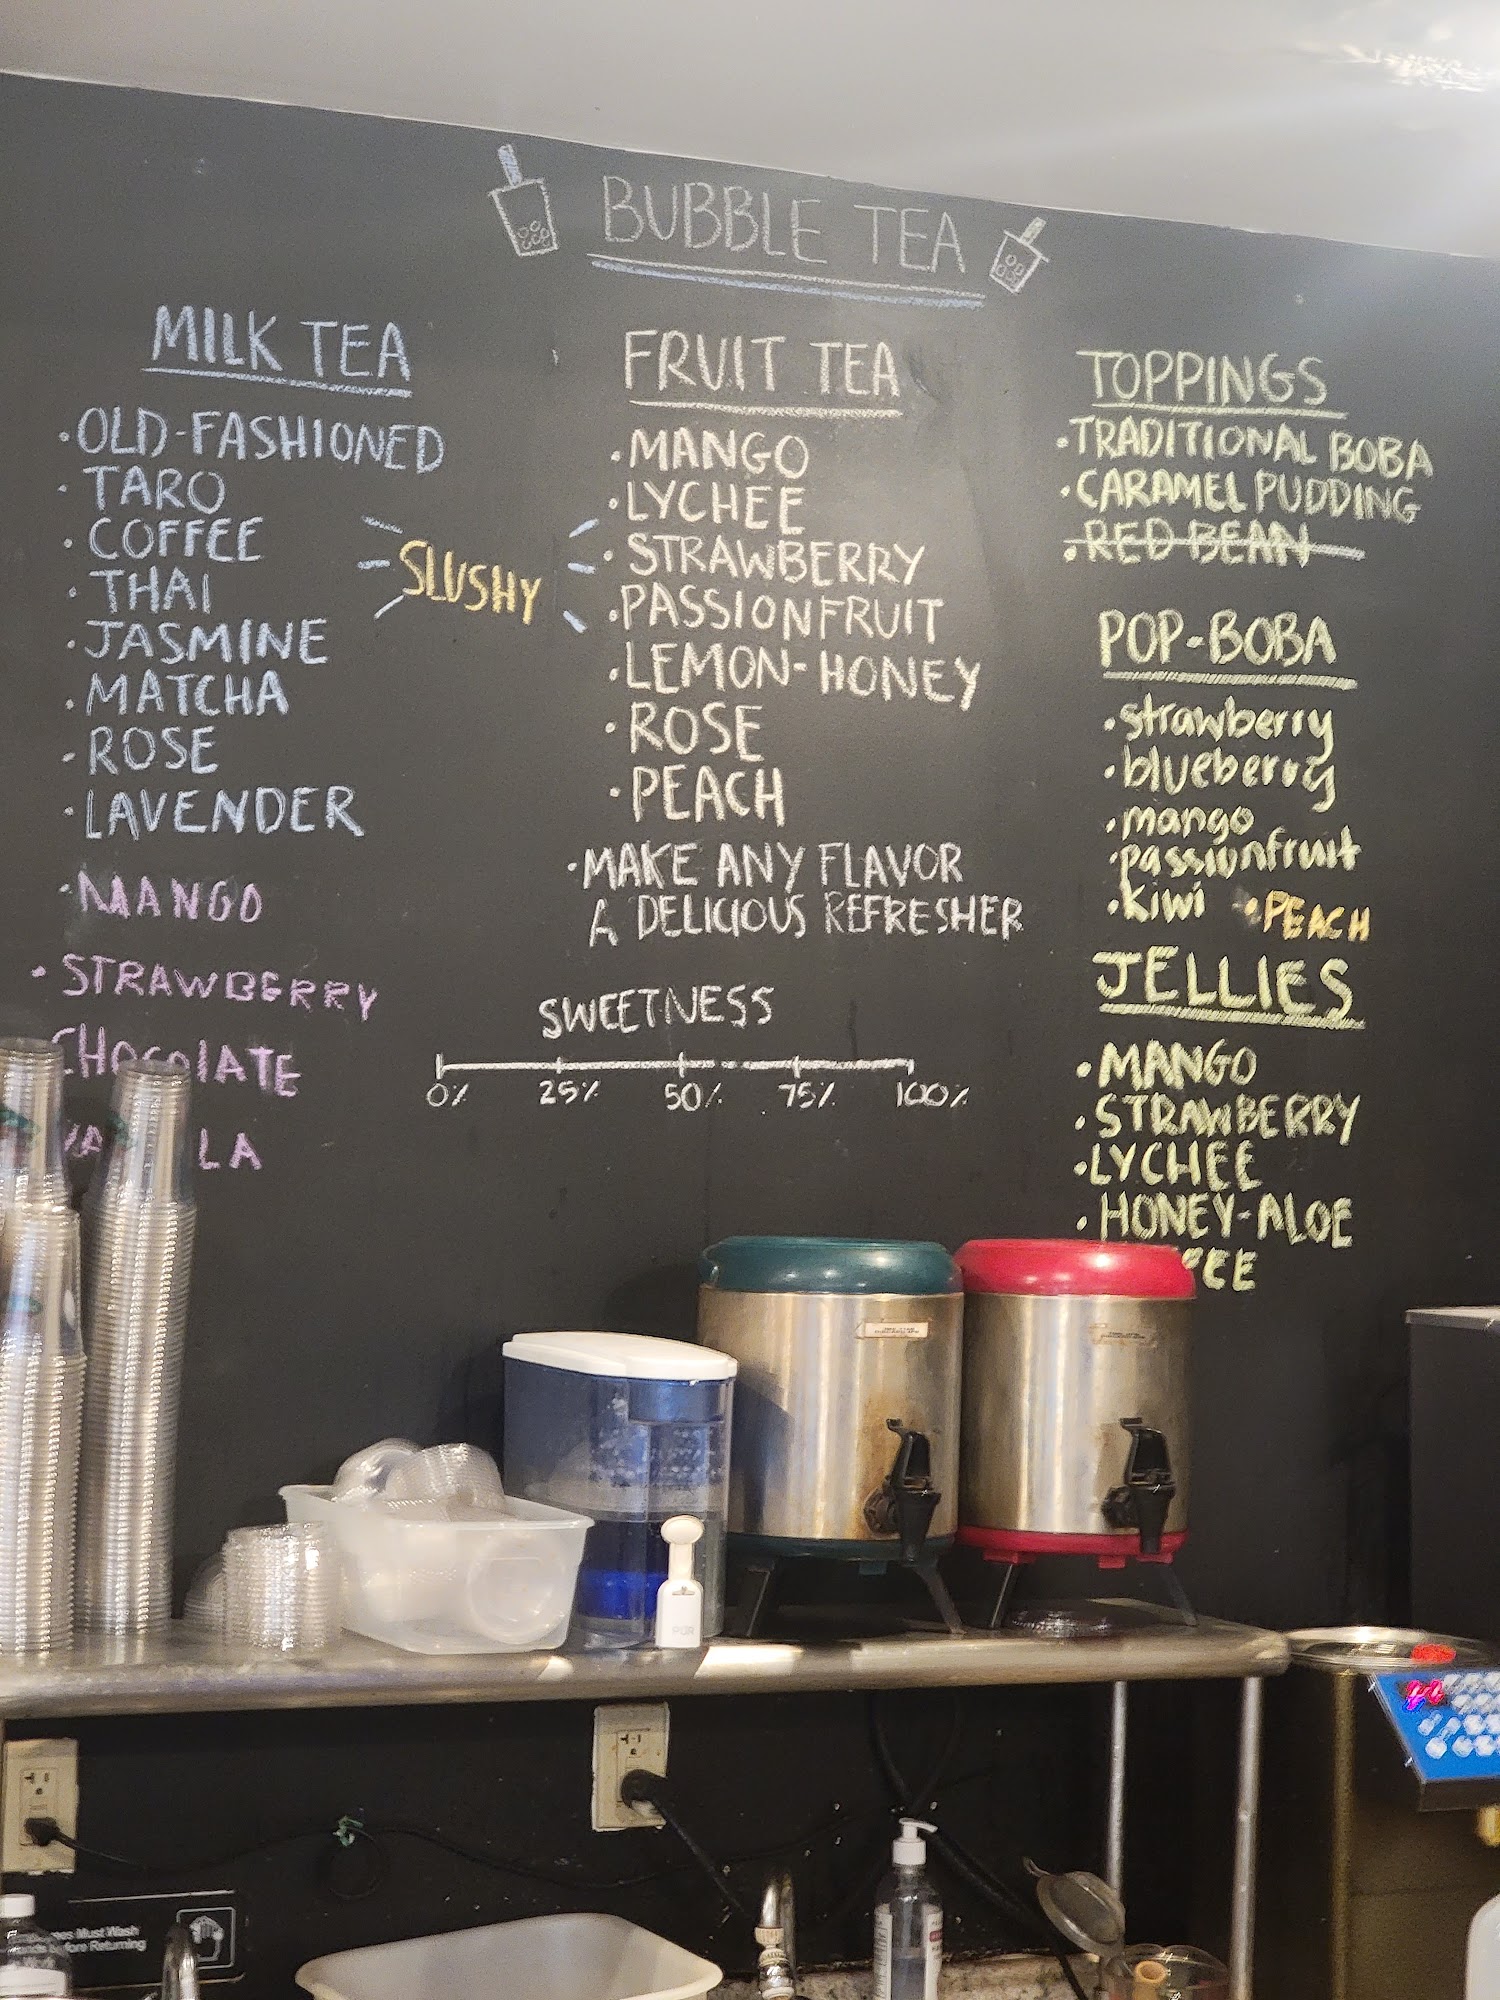 BUBBLE TEA
MILK TEA
·OLD-FASHIONED
·TARO
·COFFEE
·THAI
·JASMINE
·MATCHA
·ROSE
·LAVENDER
·MANGO
·STRAWBERRY
CHOCOLATE
SLUSHY
FRUIT TEA
·MANGO
·LYCHEE
·STRAWBERRY
·PASSIONFRUIT
·LEMON-HONEY
·ROSE
·PEACH
·MAKE ANY FLAVOR
A DELICIOUS REFRESHER
SWEETNESS
0% 25% 50% 75% 100%
TOPPINGS
·TRADITIONAL BOBA
·CARAMEL PUDDING
·RED BEAN
POP-BOBA
·strawberry
·blueberry
·mango
·passionfruit
·kiwi ·PEACH
JELLIES
·MANGO
·STRAWBERRY
·LYCHEE
·HONEY-ALOE
PUR
Must Wash
before Returning